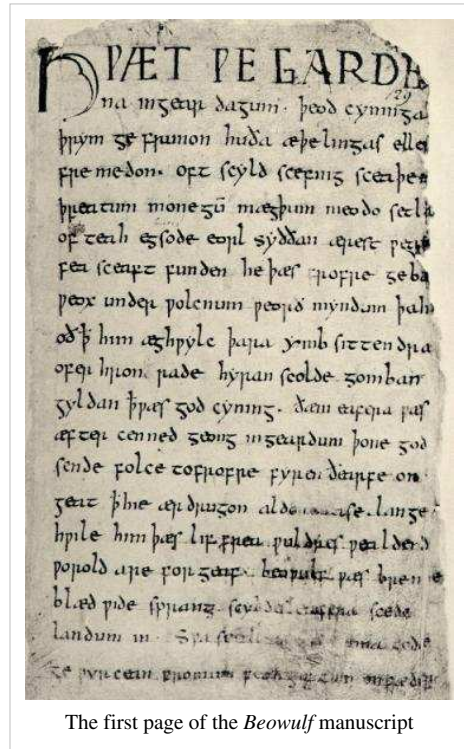 HǷÆT ǷE GARDE
29
na ingear dagum. þeod cyninga
þrym ge frunon huða æþelingas elle
fremedon. oft scyld scefing sceaþe
þreatum monegū mægþum meodo setla
of teah egsode eorl syððan ærest
fea sceaft funden he þæs frofre geba
ƿeox under ƿolcnum ƿeorð myndum þah
oð ꝥ him æghƿylc þara ymb sittendra
ofer hron rade hyran scolde gomban
gyldan ꝥ ƿæs god cyning. ðæm eafera ƿæs
æfter cenned geong ingeardum þone god
sende folce tofrofre fyren ðearfe on
geat ꝥ hie ær drugon lange
hƿile him þæs lif frea ƿuldres ƿealdend
ƿorold are for geaf. beoƿulf ƿæs breme
blæd ƿide sprang scyldes eafera scede
landum in. Sƿa gode
ge ƿyrcean fromum feoh giftum
The first page of the Beowulf manuscript